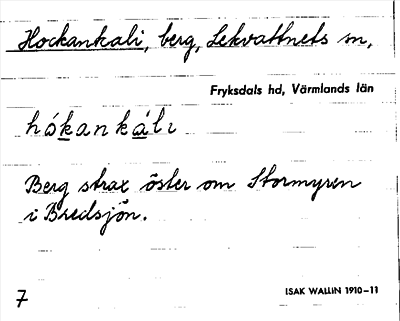 Hockankali, berg, Lekvattnets sn,
Fryksdals hd, Värmlands län
hókankálı
Berg strax öster om Stormyren
i Bredsjön.
7
ISAK WALLIN 1910-11